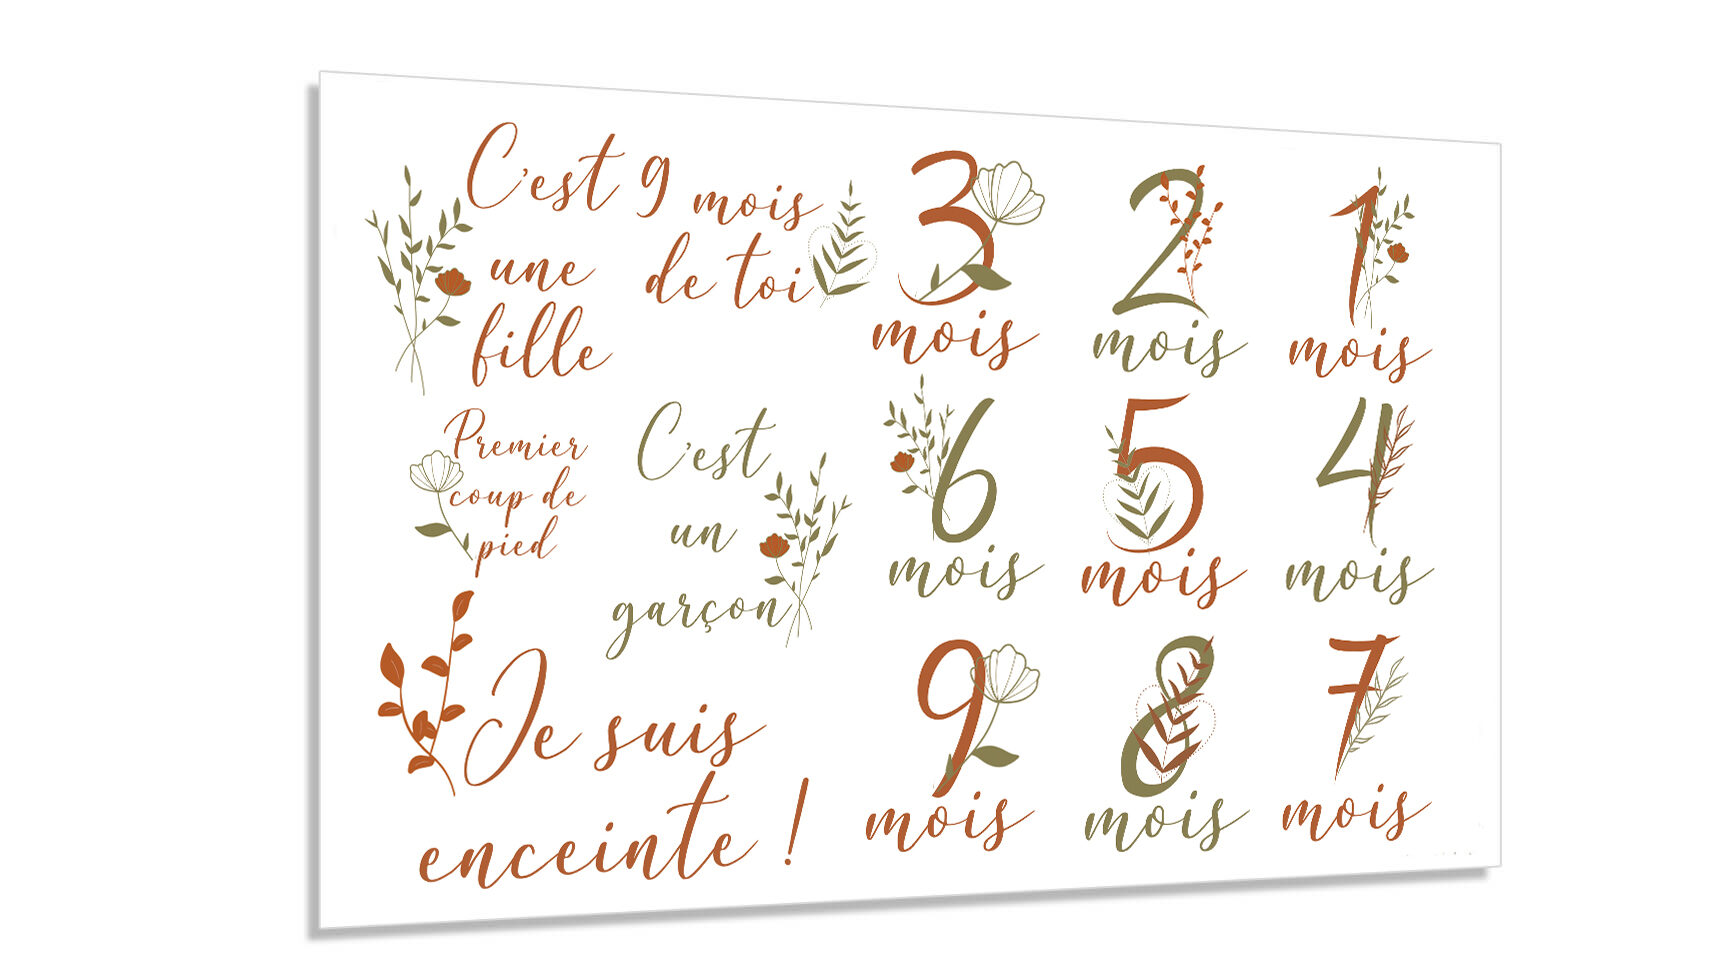 C'est
une
fille
9 mois
de toi
3
mois
2
mois
1
mois
Premier
coup de
pied
C'est
un
garçon
6
mois
5
mois
4
mois
Je suis
enceinte !
9
mois
8
mois
7
mois